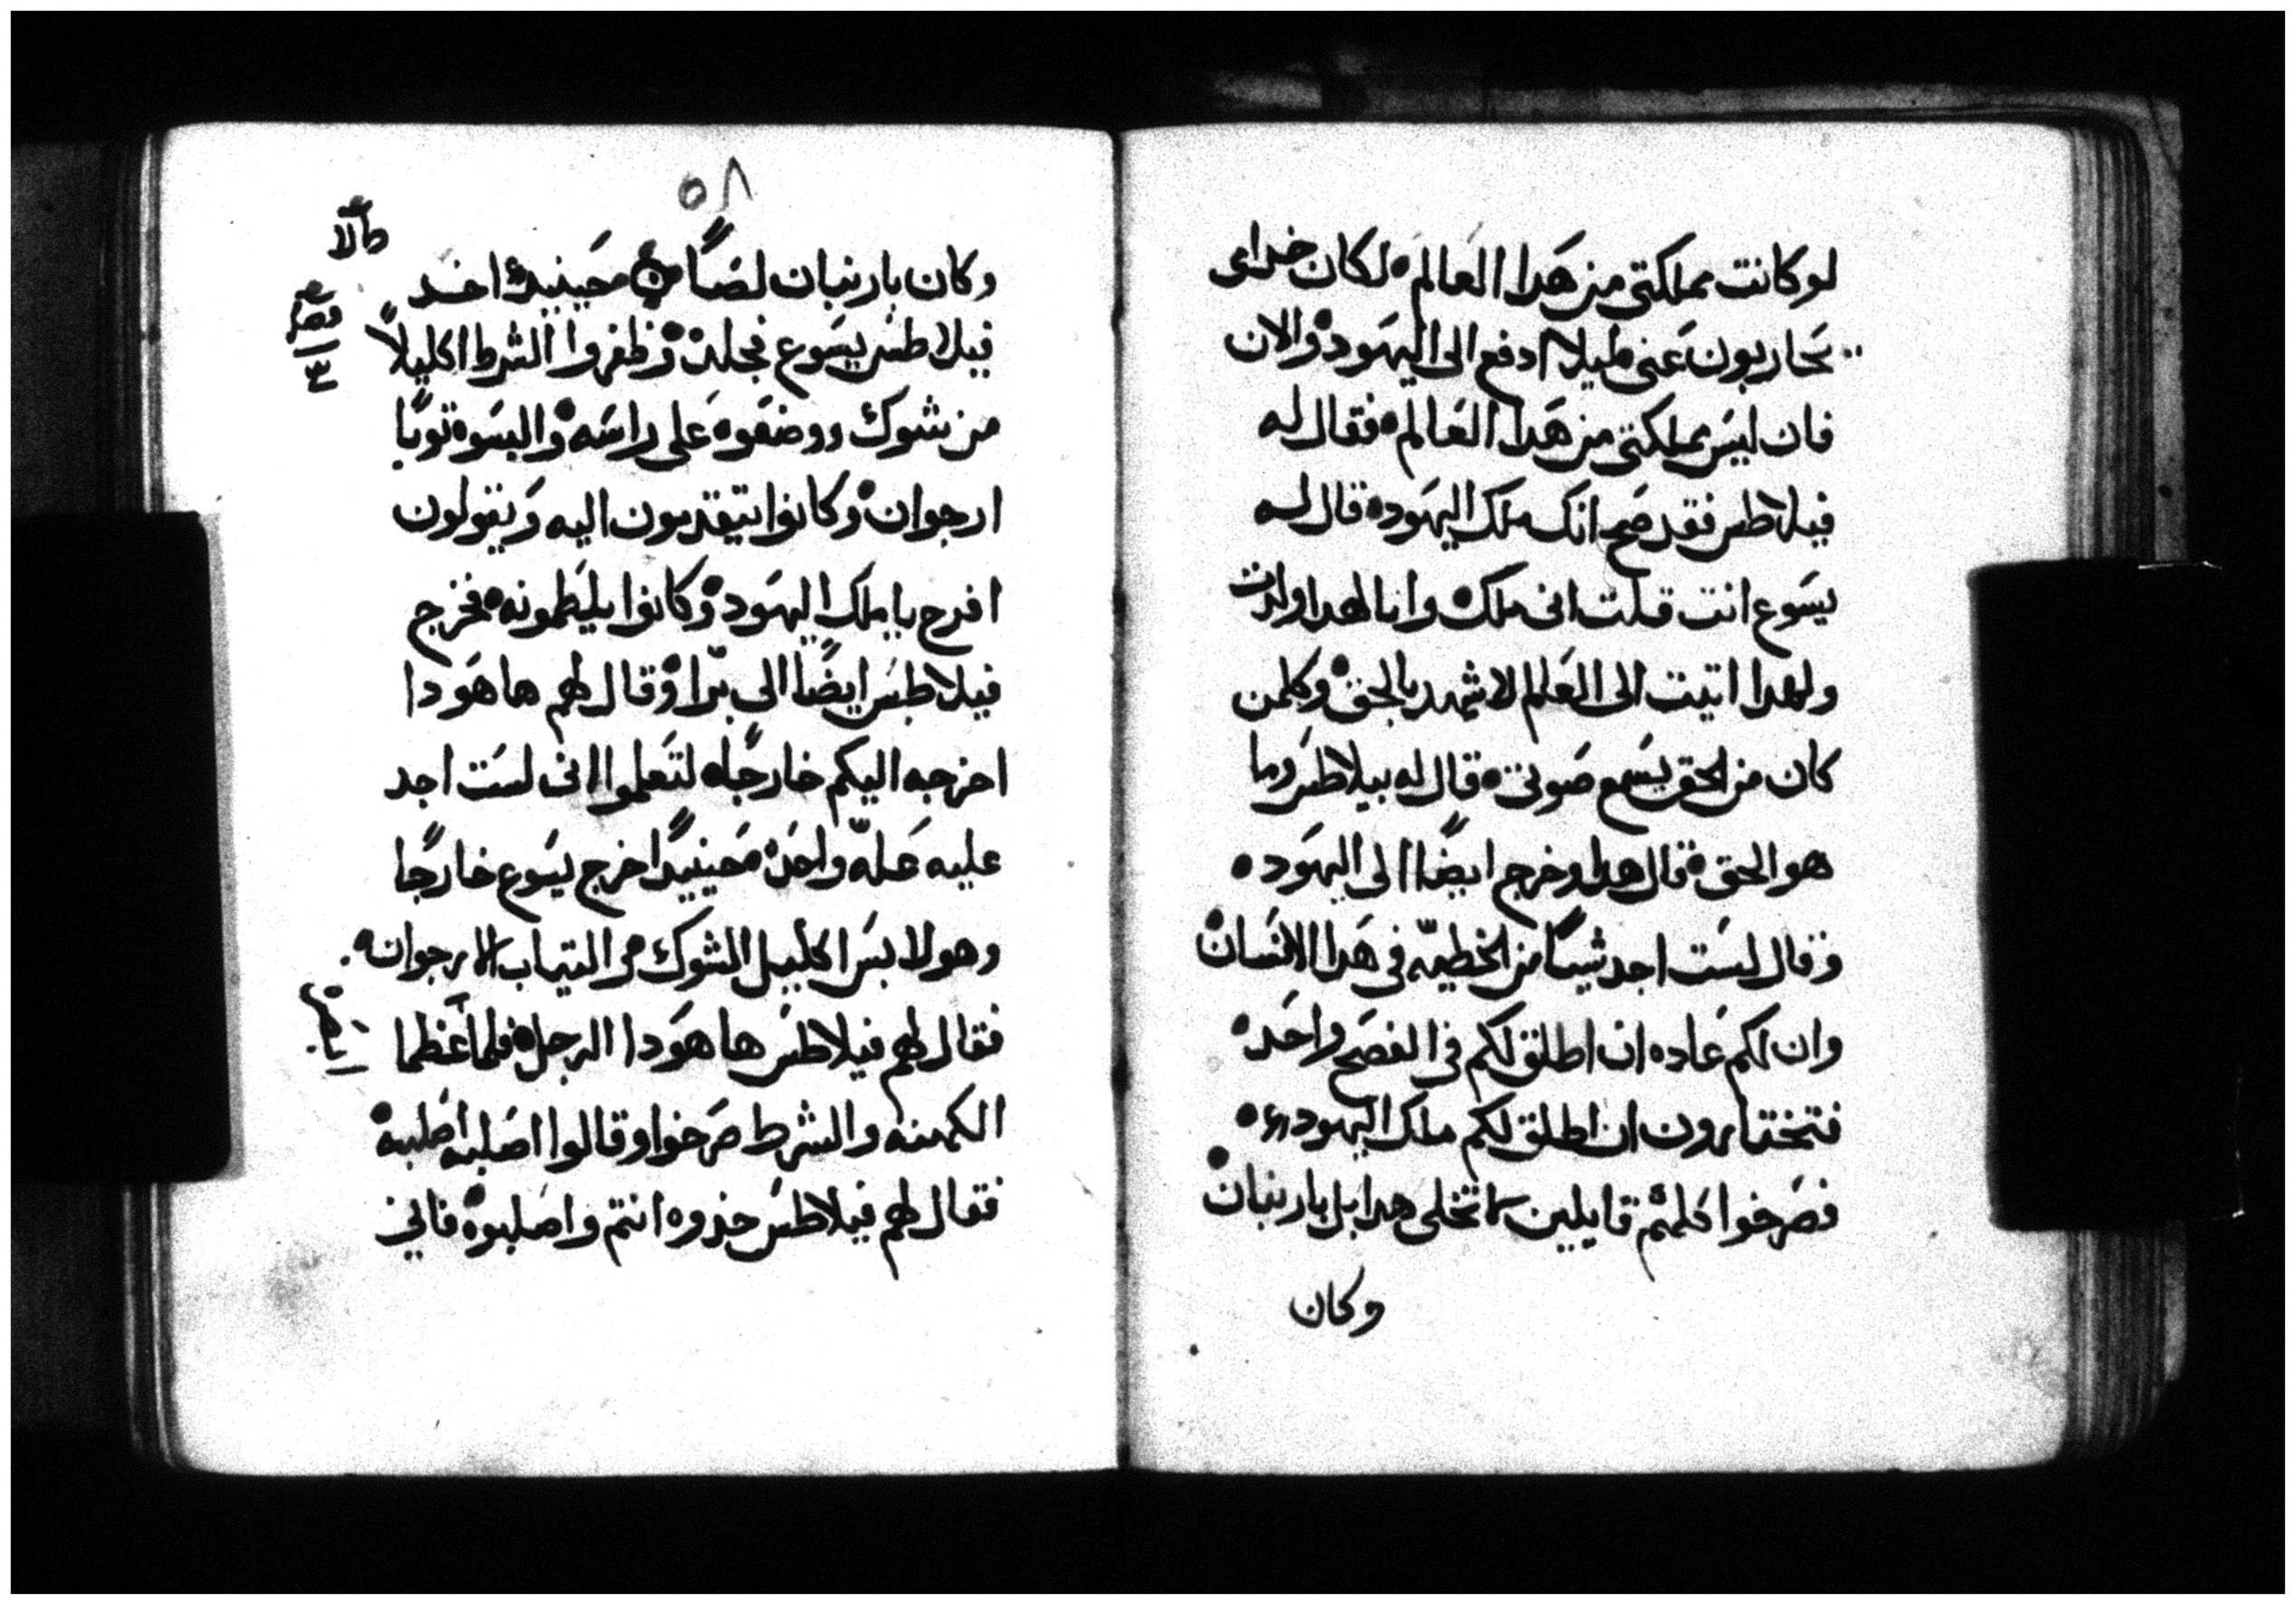 لو كانت مملكتى من هدا العالم لكان خدامى
يحاربون عنى ليلا ادفع الى اليهود والان
فان ليس مملكتى من هدا العالم فقال له
فيلاطس فقد صح انك ملك اليهود قال له
يسوع انت قلت انى ملك وانا لهدا ولدت
ولهدا اتيت الى العالم لاشهد بالحق وكلمن
كان من الحق يسمع صوتى قال له بيلاطس وما
هو الحق قال هدا وخرج ايضًا الى اليهود
وقال لست اجد شيئا من الخطيه فى هدا الانسان
وان لكم عاده ان اطلق لكم فى الفصح واحد
فتختارون ان اطلق لكم ملك اليهود
فصرخوا كلهم قايلين لا تخلى هدا بل باربنان
وكان
٥٨
وكان باربنان لصًا حينيد اخد
فيلاطس يسوع فجلده وظفروا الشرط اكليلاً
من شوك ووضعوه على راسه والبسوه توبًا
ارجوان وكانوا يتقدمون اليه ويقولون
افرح يا ملك اليهود وكانوا يلطمونه فخرج
فيلاطس ايضًا الى برا وقال لهم ها هودا
اخرجه اليكم خارجًا لتعلموا انى لست اجد
عليه علّه واحده حينيدا خرج يسوع خارجًا
وهو لابس اكليل الشوك والتياب الارجوان
فقال لهم فيلاطس ها هودا الرجل فلما عظما
الكهنه والشرط صرخوا وقالوا اصلبه اصلبه
فقال لهم فيلاطس خدوه انتم واصلبوه فانى